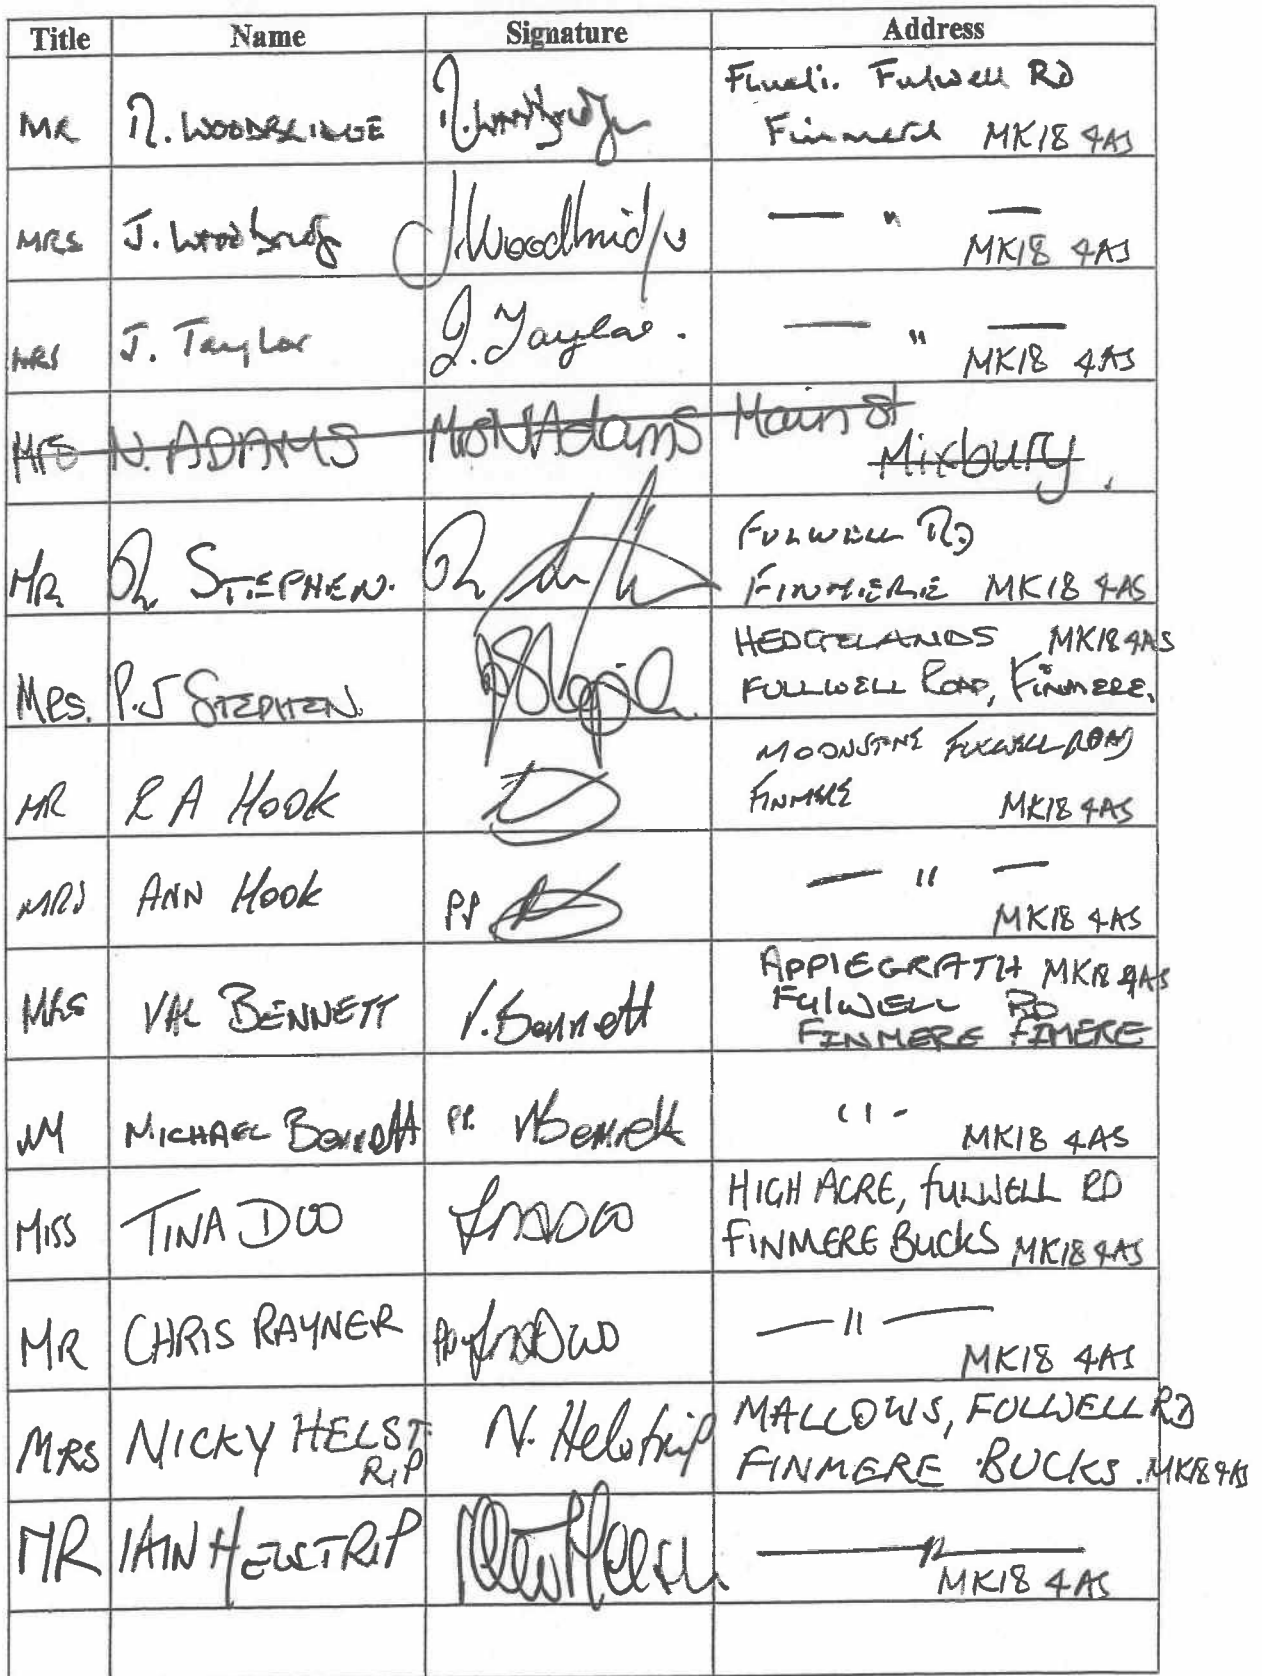 Title Name Signature Address
MR R. WOODBRIDGE R. Woodbridge Fulwell RD
Finmere MK18 4AS
MRS J. Woodbridge J. Woodbridge — " —
MK18 4AS
MRS J. Taylor J. Taylor. — " —
MK18 4AS
Mrs N. ADAMS Mrs N Adams Main St
Mixbury.
MR R STEPHEN. FULWELL RD
FINMERE MK18 4AS
MRS. P.J STEPHEN. HEDGELANDS MK18 4AS
FULLWELL ROAD, FINMERE.
MR R A Hook MOONSTONE FULWELL ROAD
FINMERE MK18 4AS
MRS ANN Hook PP — " —
MK18 4AS
MRS VAL BENNETT V. Bennett APPLEGRATH MK18 4AS
FULWELL RD
FINMERE FIMERE
MICHAEL Bennett PP. V Bennett " -
MK18 4AS
MISS TINA DOO HIGH ACRE, FULWELL RD
FINMERE BUCKS MK18 4AS
MR CHRIS RAYNER — " —
MK18 4AS
MRS NICKY HELST- N. Helstrip MALLOWS, FULWELL RD
RIP FINMERE BUCKS. MK18 4AS
MR IAIN HELSTRIP — " —
MK18 4AS